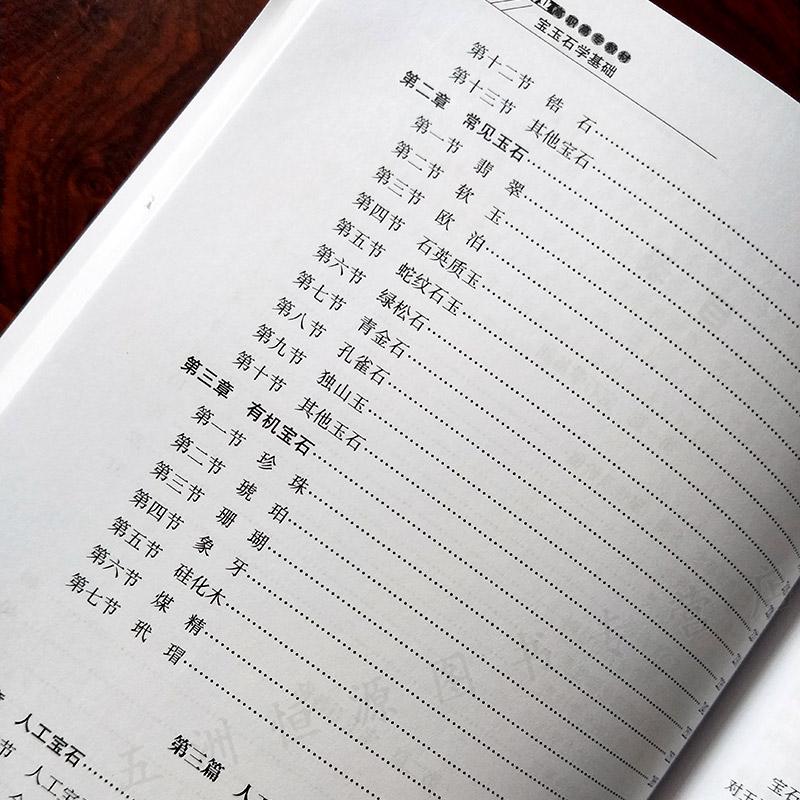 宝玉石学基础
第十二节 锆石
第十三节 其他宝石
第二章 常见玉石
第一节 翡翠
第二节 软玉
第三节 欧泊
第四节 石英质玉
第五节 蛇纹石玉
第六节 绿松石
第七节 青金石
第八节 孔雀石
第九节 独山玉
第十节 其他玉石
第三章 有机宝石
第一节 珍珠
第二节 琥珀
第三节 珊瑚
第四节 象牙
第五节 硅化木
第六节 煤精
第七节 玳瑁
第三篇 人工
章 人工宝石
节 人工宝
五洲恒源图书
宝石
对玉